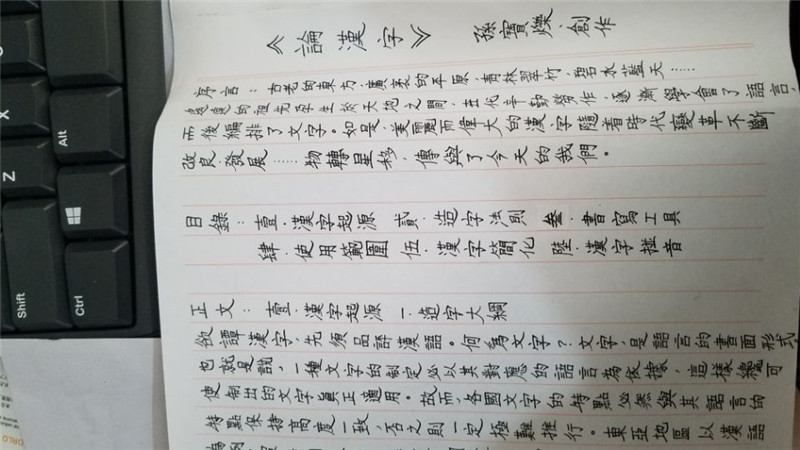 《論漢字》 孫寶燦·創作
序言：古老的東方，廣袤的平原，青林翠竹，碧水藍天……
遠的祖先孕生於天地之間，世代辛勤勞作，逐漸學會了語言，
而後編排了文字。如是，美麗而偉大的漢字隨着時代變革不斷
改良、發展……物轉星移，傳與了今天的我們。
目錄：壹·漢字起源 貳·造字法則 叁·書寫工具
肆·使用範圍 伍·漢字簡化 陸·漢字拼音
正文：壹·漢字起源 一·造字大綱
欲譚漢字，先須品評漢語。何為文字？文字，是語言的書面形式，
也就是說，一種文字的制定必以其對應的語言為依據，這樣纔可
使制出的文字真正通用。故而，各國文字的特點必然與其語言的
特點保持高度一致，否之則一定極難推行。東亞地區以漢語
X
Z
Alt
Shift
Ctrl
ORLD